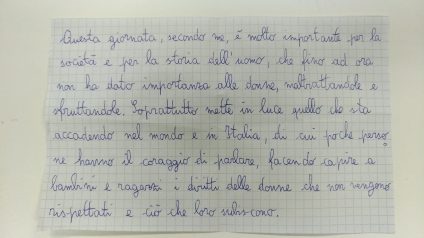 Questa giornata, secondo me, è molto importante per la
società e per la storia dell'uomo, che fino ad ora
non ha dato importanza alle donne, maltrattandole e
sfruttandole. Soprattutto mette in luce quello che sta
accadendo nel mondo e in Italia, di cui poche perso
ne hanno il coraggio di parlare, facendo capire a
bambini e ragazzi i diritti delle donne che non vengono
rispettati e ciò che loro subiscono.